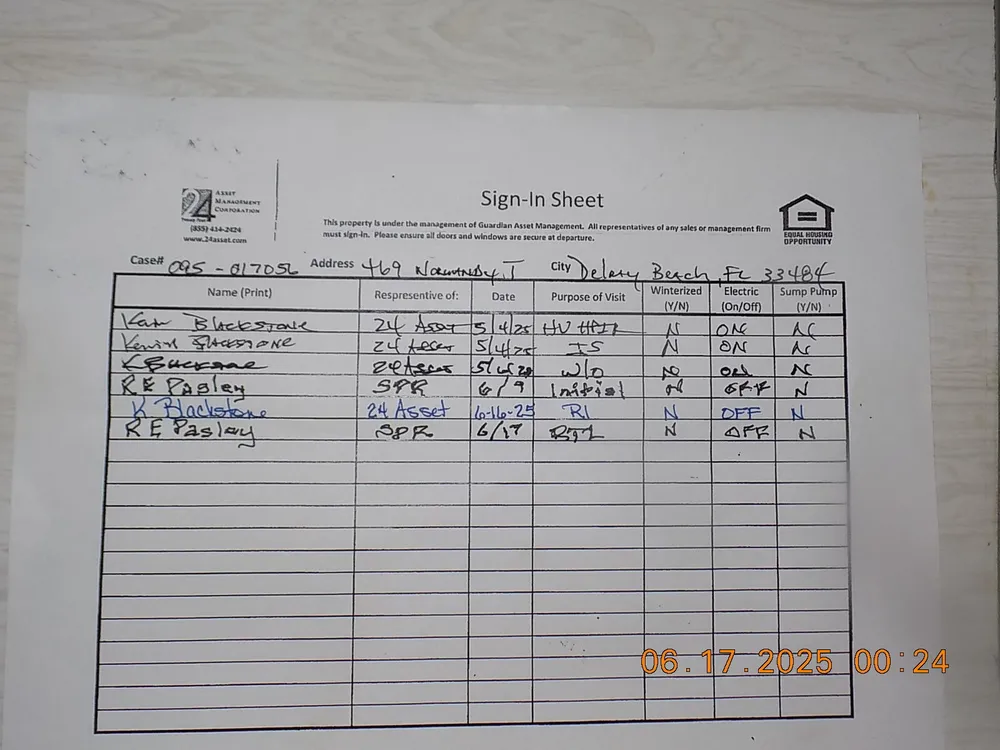 24 ASSET
MANAGEMENT
CORPORATION
(855) 414-2424
www.24asset.com
Sign-In Sheet
This property is under the management of Guardian Asset Management. All representatives of any sales or management firm
must sign-in. Please ensure all doors and windows are secure at departure.
EQUAL HOUSING
OPPORTUNITY
Case# 095-017056 Address 469 Normandy City Delray Beach, FL 33484
Name (Print) Respresentive of: Date Purpose of Visit Winterized (Y/N) Electric (On/Off) Sump Pump (Y/N)
BLACKSTONE 24 ASSET 5/4/25 N ON N
Kevin BLACKSTONE 24 Asset 5/4/25 IS N ON N
K Blackstone 24 Asset W/O N ON N
R E Pasley SPR 6/9 Initial N OFF N
K Blackstone 24 Asset 6-16-25 RI N OFF N
R E Pasley SPR 6/17 N OFF N
06.17.2025 00:24